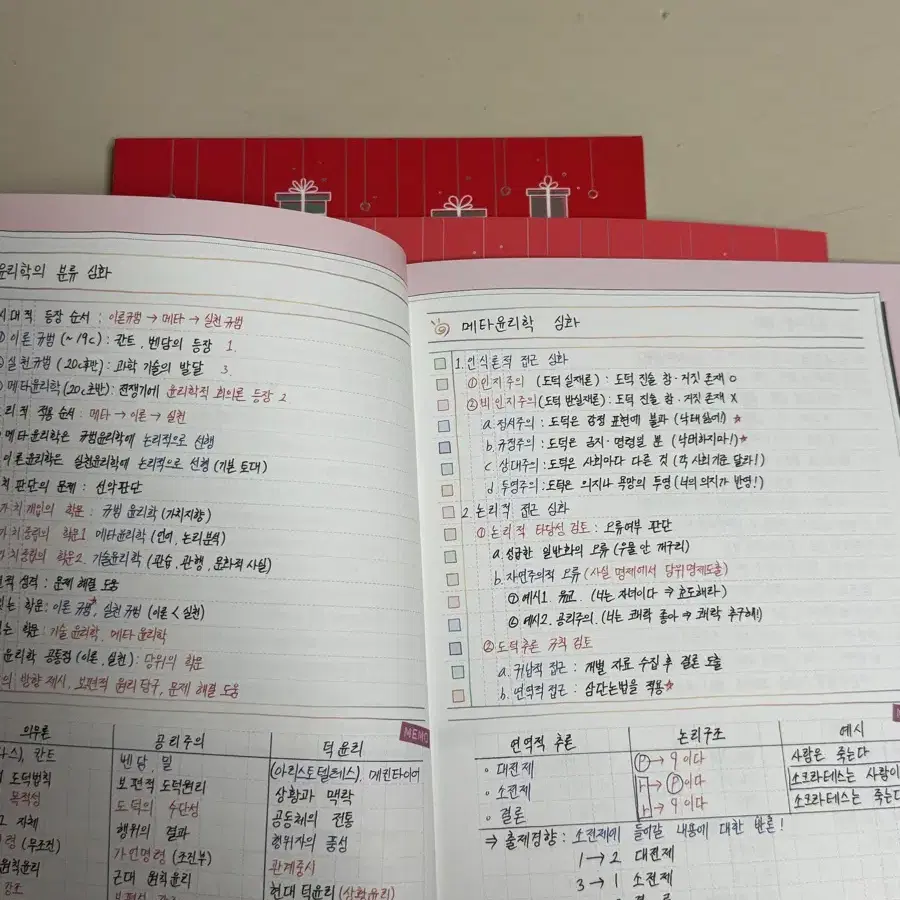 윤리학의 분류 심화
시대적 등장 순서 : 이론규범 → 메타 → 실천 규범
이론 규범 (~19c) : 칸트, 벤담의 등장 1.
실천규범 (20c후반) : 과학 기술의 발달 3.
메타윤리학 (20c초반) : 전쟁기에 윤리학적 회의론 등장 2
논리적 적용 순서 : 메타 → 이론 → 실천
메타윤리학은 규범윤리학에 논리적으로 선행
이론윤리학은 실천윤리학에 논리적으로 선행 (기본 토대)
판단의 문제 : 선악판단
가치개입의 학문 : 규범 윤리학 (가치지향)
가치중립의 학문1 메타윤리학 (언어, 논리분석)
가치중립의 학문2 기술윤리학 (관습, 관행, 문화적 사실)
성격 : 문제 해결 도움
있는 학문 : 이론 규범, 실천 규범 (이론 < 실천)
없는 학문 : 기술 윤리학, 메타 윤리학
윤리학 공통점 (이론, 실천) : 당위의 학문
방향 제시, 보편적 원리 탐구, 문제 해결 도움
MEMO
의무론 공리주의 덕 윤리
칸트 벤담, 밀 (아리스토텔레스), 매킨타이어
도덕법칙 보편적 도덕원리 상황과 맥락
목적성 도덕의 수단성 공동체의 전통
자체 행위의 결과 행위자의 품성
(무조건) 가언명령 (조건부) 관계중시
원칙윤리 근대 원칙윤리 현대 덕윤리 (상황윤리)
강조
메타윤리학 심화
1. 인식론적 접근 심화
① 인지주의 (도덕 실재론) : 도덕 진술 참·거짓 존재 O
② 비인지주의 (도덕 반실재론) : 도덕 진술 참·거짓 존재 X
a. 정서주의 : 도덕은 감정 표현에 불과 (낙태싫어!) ★
b. 규정주의 : 도덕은 금지·명령일 뿐 (낙태하지마!) ★
c. 상대주의 : 도덕은 사회마다 다른 것 (각 사회기준 달라!)
d. 투영주의 : 도덕은 의지나 욕망의 투영 (너의 의지가 반영!)
2. 논리적 접근 심화
① 논리적 타당성 검토 : 오류여부 판단
a. 성급한 일반화의 오류 (우물 안 개구리)
b. 자연주의적 오류 (사실 명제에서 당위명제도출)
① 예시1. 유교. (너는 자녀이다 ⇒ 효도해라)
② 예시2. 공리주의. (너는 쾌락 좋아 ⇒ 쾌락 추구해!)
② 도덕추론 규칙 검토
a. 귀납적 접근 : 개별 자료 수집 후 결론 도출
b. 연역적 접근 : 삼단논법을 적용 ★
연역적 추론 논리구조 예시
◦ 대전제 P → q 이다 사람은 죽는다
◦ 소전제 r → P 이다 소크라테스는 사람이
◦ 결론 r → q 이다 소크라테스는 죽는다
⇒ 출제경향 : 소전제에 들어갈 내용에 대한 반론!
1 → 2 대전제
3 → 1 소전제